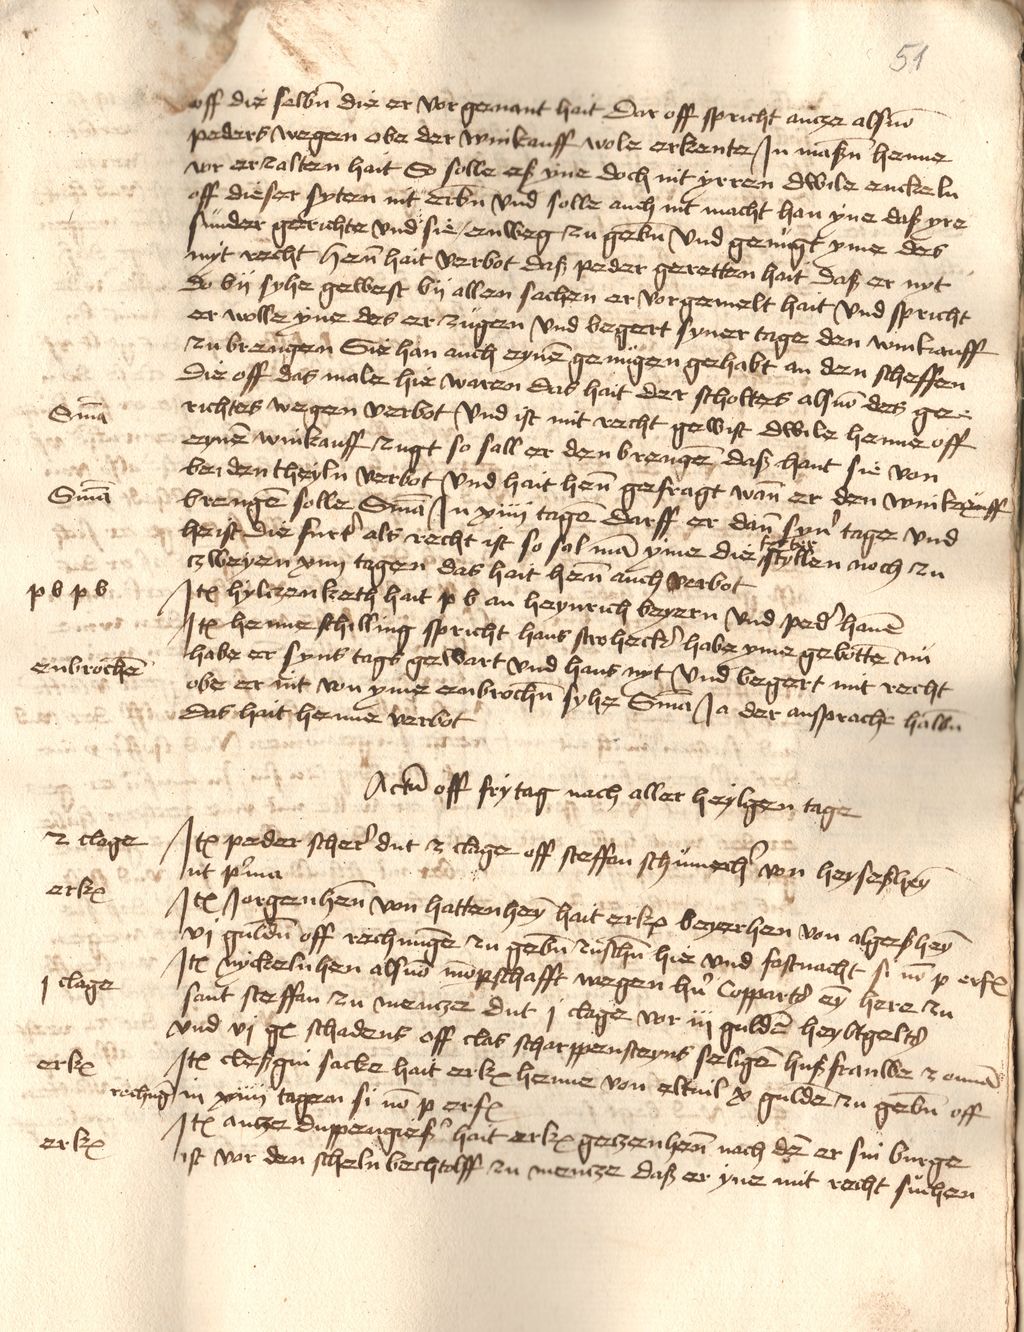 51
off die selbñ die er vorgenant hait Dar off spricht ancze alsuõ
peders wegen obe der winkauff wole erkente In maßñ henne
vor erzalten hait So solle eß yne doch nit yrren dwile enckeln
off dieser syten nit erbñ vnd solle auch nit macht han yne daß yre
sunder gerichte vnd sie enweg zu gebñ vnd genugt yme des
myt recht henñ hait verbot daß peder geretten hait daß er nyt
do bij syhe gewest bij allen sachen er vorgemelt hait vnd spricht
er wolle yne des erzugen vnd begert syner tage den winkauff
zu brengen Sie han auch eynẽ genugen gehabt an den scheffen
die off das male hie waren das hait der scholtes alsuõ des ge-
richtes wegen verbot vnd ist mit recht gewist dwile henne off
Sñia
eynẽ winkauff zugt so sall er den brengẽ daß hant sie von
beiden theyln verbot vnd hait henñ gefragt wañ er den winkauff
brengẽ solle Sñia In xiiij tagẽ Darff er dañ syn' tage vnd
Sñia
heist die furt' als recht ist so sal mã yme die furter stellen noch zu
czweyen xiiij tagen das hait henñ auch verbot
p b p b
Itẽ hyltzenketh hait p b an heynrich beyern vnd ped' hanẽ
Itẽ henne schilling spricht hans stroheck' habe yme gebottẽ nu
habe er syns tags gewart vnd hans nyt vnd begert mit recht
enbrochẽ
obe er nit von yme enbrochñ syhe Sñia Ja der ansprache halbñ
das hait henne verbot
Actũ off frytag nach aller heyligen tage
2 clage
Itẽ peder scher' dut 2 clage off steffan schumech' von heyseßheỹ
ut p'ma
erkẽ
Itẽ Jorgenhenñ von hattenheỹ hait erkẽ beyerhen von algeßheỹ
vj guldñ off rechnungẽ zu gebñ zuschñ hie vnd fastnacht si nõ p erfẽ
1 clage
Itẽ nyckelnhen alsuõ mõpschafft wegen h'n Coppart' eỹ here zu
sant steffan zu mencze dut j clage vor iij guldẽ heubtgelt'
vnd vj gẽ schadens off clas scharppensteyns seligẽ hußfrauwe 2 om̃ia
erkẽ
Itẽ cleßgin sacke hait erkẽ henne von eltuil x guldẽ zu gebñ off
rechnũg in xiiij tagen si nõ p erfẽ
erkẽ
Itẽ ancze duppengieß' hait erkẽ geczenhenñ nach dẽ er sin burge
ist vor den scheln bechtolff zu mencze daß er yne mit recht suchen